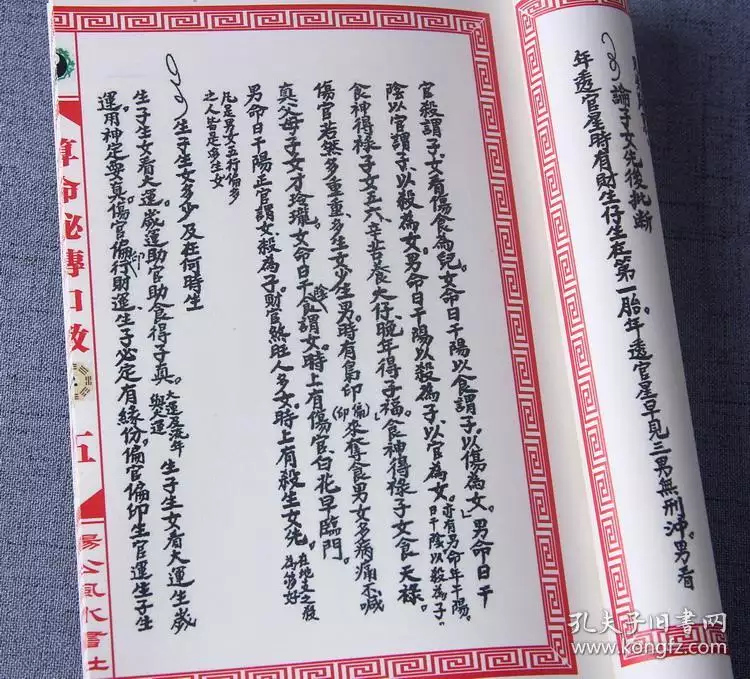 論子女先後批斷
年透官星時有財生仔生在第一胎。年透官星早見三男無刑沖。男看
官殺謂子女看傷食為兒。女命日干陽以食謂子以傷為女。男命日干
陰以官謂子以殺為女。男命日干陽以殺為子以官為女。亦有男命年干陽。日干陰以殺為子。
食神得祿子女五六。辛苦養大仔晚年得子福。食神得祿子女食天祿。
傷官若然多重重、多生女少生男。時有梟印(偏印)來奪食男女多病痛不喊
真父母子女才玲瓏。女命日干陰食謂女。時上有傷官、白花早臨門。
男命日干陽正官謂女殺為子財官煞旺人多女。時上有殺生女先。在地支之殺為第好
凡是男女五行偏多
之人皆定多生女
生子生女多少及在何時生
生子生女看大運。歲運助官助食得子真。大運為流年與大運。生子生女看大運生歲
運用神定要真。傷官偏印行財運生子必定有緣份。偏官偏印生官運生子生
算命秘傳口訣
五
楊公風水書社
孔夫子旧书网
www.kongfz.com